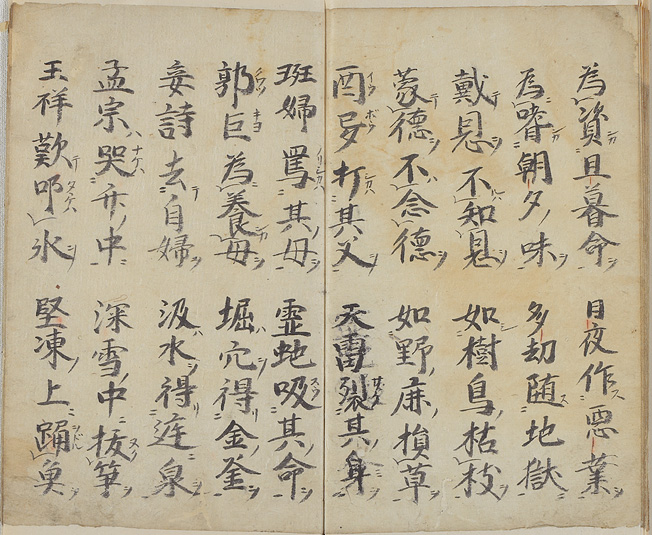 為資旦暮命 日夜作悪業
為嗜朝夕味 多劫随地獄
戴恩不知恩 如樹鳥枯枝
蒙徳不念徳 如野鹿損草
酉夢打其父 天雷裂其身
班婦罵其母 霊蛇吸其命
郭巨為養母 堀穴得金釜
姜詩去自婦 汲水得庭泉
孟宗哭竹中 深雪中抜笋
王祥歎叩氷 堅凍上踊魚